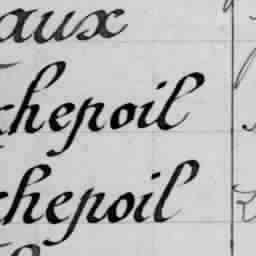 aux
chepoil
chepoil